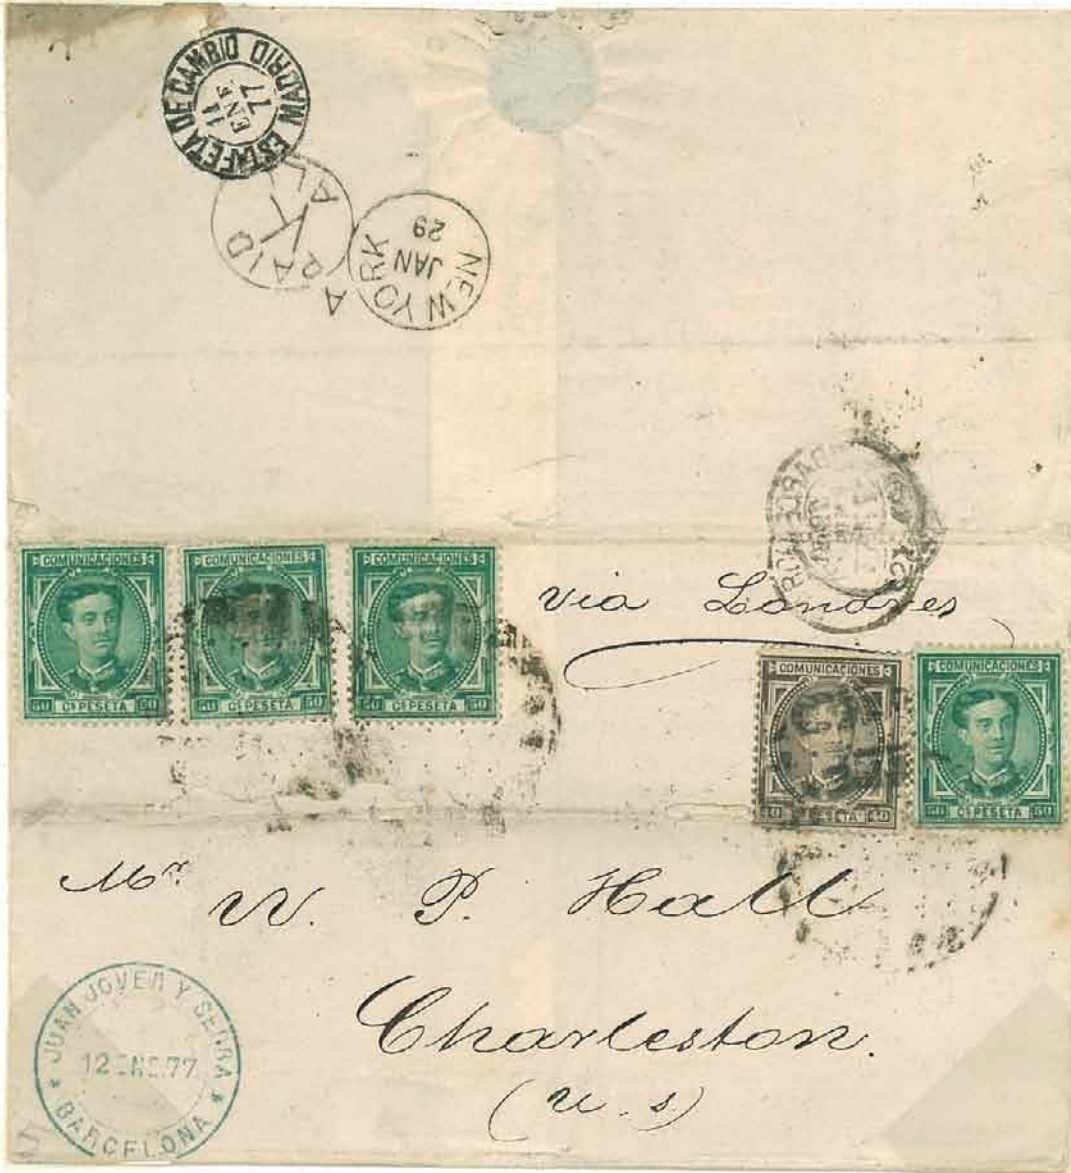 ESTAFETA DE CAMBIO MADRID
11
ENE.
77
PAID
ALL
A
NEW YORK
JAN
29
COMUNICACIONES
50 Cs PESETA 50
COMUNICACIONES
50 Cs PESETA 50
COMUNICACIONES
50 Cs PESETA 50
via Londres
COMUNICACIONES
40 Cs PESETA 40
COMUNICACIONES
50 Cs PESETA 50
Mr. W. P. Hall
Charleston.
(U. S.)
JUAN JOVER Y SERRA
12 ENE.77
* BARCELONA *